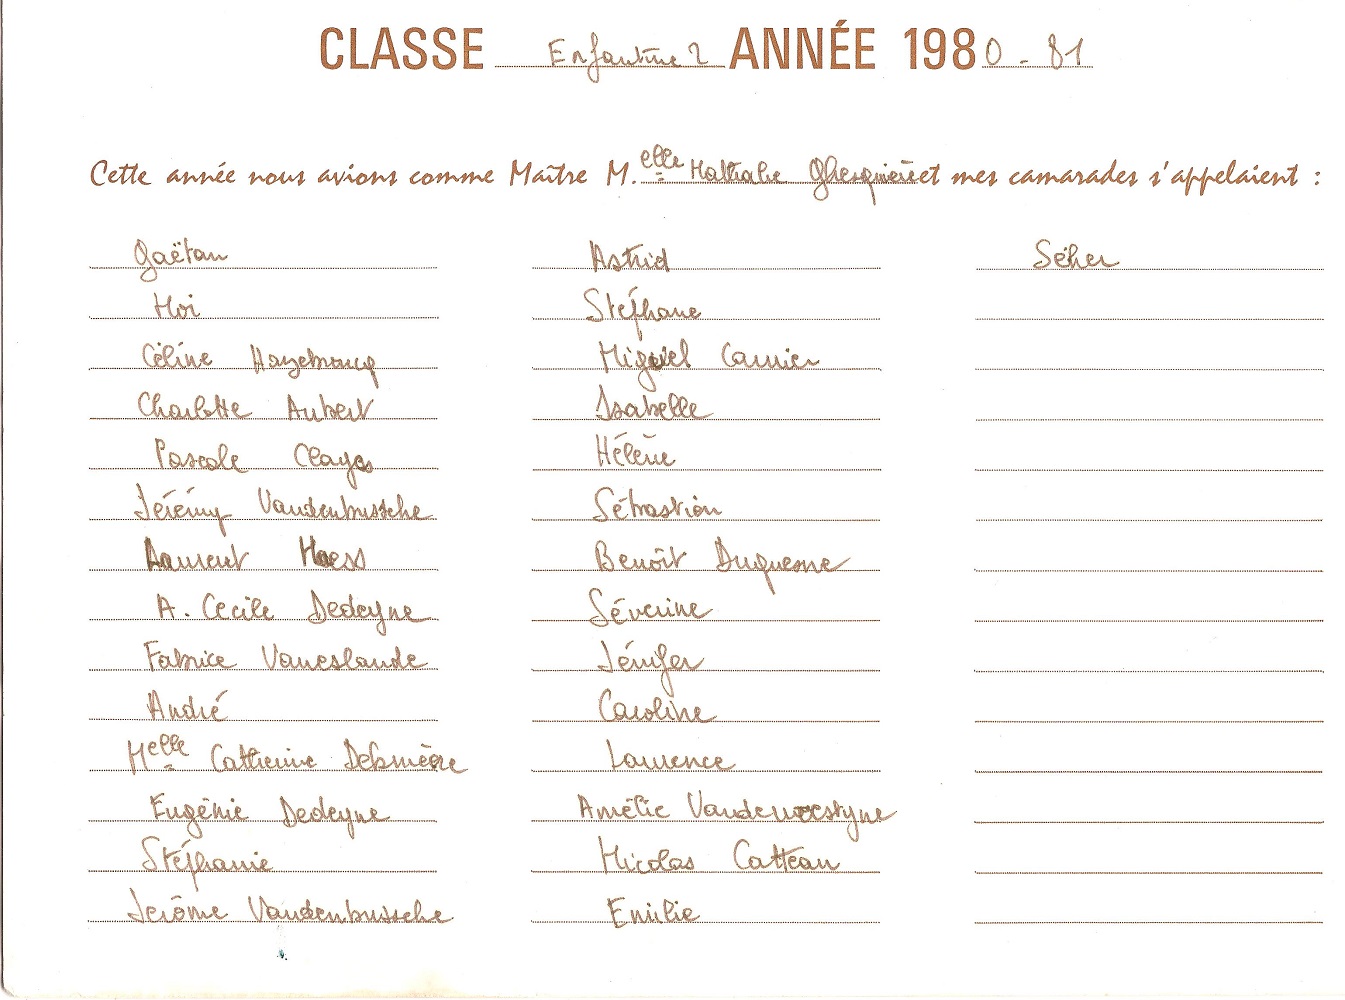 CLASSE Enfantine 2 ANNÉE 1980-81
Cette année nous avions comme Maître M.elle Nathalie Ghesquière et mes camarades s'appelaient :
Gaëtan
Moi
Céline Hazebroucq
Charlotte Aubert
Pascale Clays
Jérémy Vandenbussche
Laurent Haess
A. Cécile Dedeyne
Fabrice Vaneslande
André
Melle Catherine
Eugénie Dedeyne
Stéphanie
Jérôme Vandenbussche
Astrid
Stéphane
Miguel Carnier
Isabelle
Hélène
Sébastien
Benoît Duquesne
Séverine
Jénifer
Caroline
Laurence
Amélie Vandewoestyne
Nicolas Catteau
Emilie
Séher